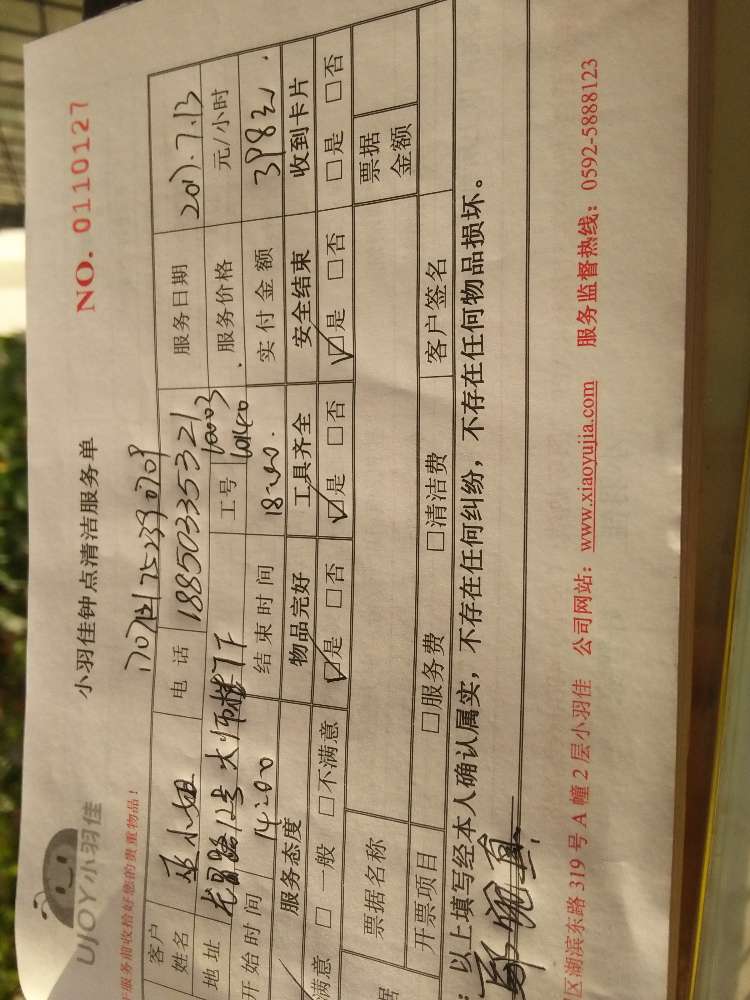 UJOY小羽佳
小羽佳钟点清洁服务单
NO. 0110127
服务前收拾好您的贵重物品!
客户姓名
电话 18850335321
服务日期 2017.7.13
地址
工号
服务价格 元/小时
开始时间 14:00
结束时间 18:00
实付金额 398元.
服务态度 物品完好 工具齐全 安全结束 收到卡片
满意 □一般 □不满意 □是 □否 □是 □否 □是 □否 □是 □否
票据名称 票据金额
开票项目 □服务费 □清洁费 客户签名
以上填写经本人确认属实,不存在任何纠纷,不存在任何物品损坏。
区湖滨东路 319 号 A 幢 2 层小羽佳 公司网站:www.xiaoyujia.com 服务监督热线:0592-5888123